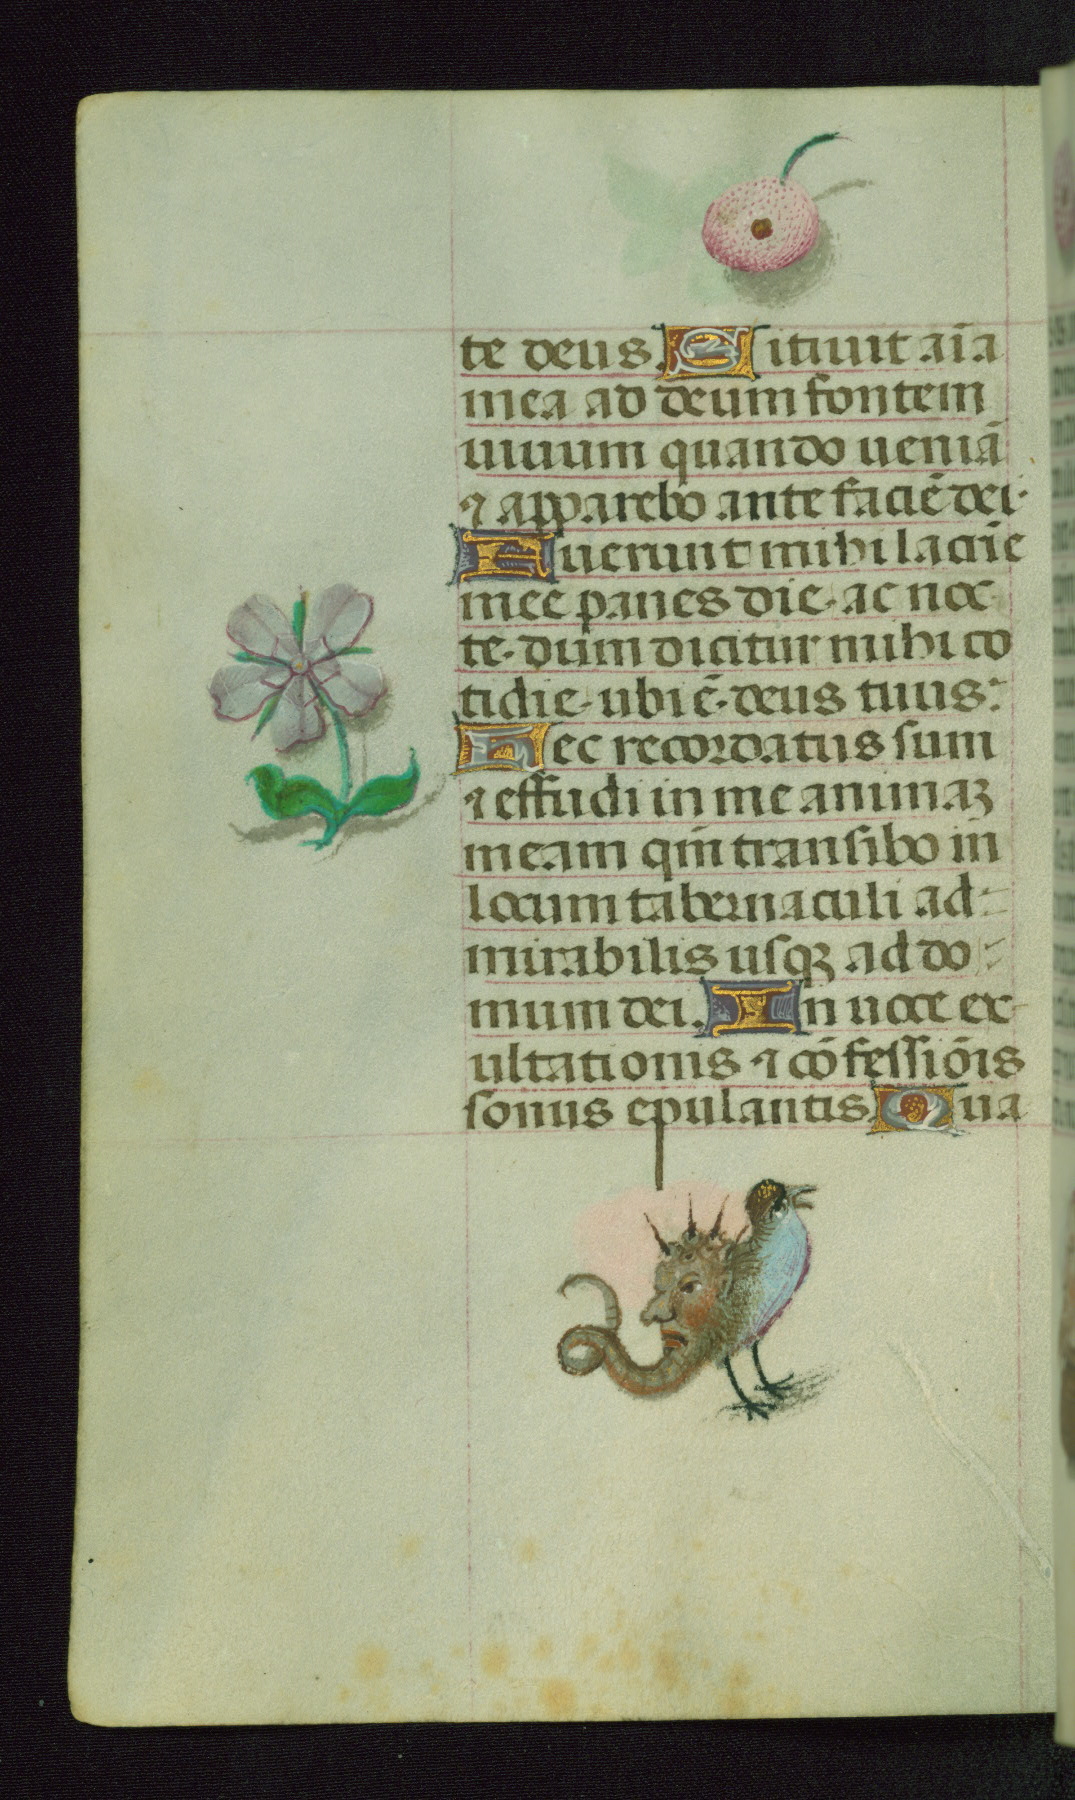 te deus. Sitiuit aīa
mea ad deum fontem
uiuum quando ueniā
⁊ apparebo ante faciē dei.
Fuerunt mihi lacrīe
mee panes die. ac noc
te. dum dicitur mihi co
tidie. ubi ē. deus tuus.
Hec recordatus sum
⁊ effudi in me animaꝫ
meam qm̄ transibo in
locum tabernaculi ad=
mirabilis usqꝫ ad do=
mum dei. In uoce ex-
ultationis ⁊ cōfessiōis
sonus epulantis. Qua